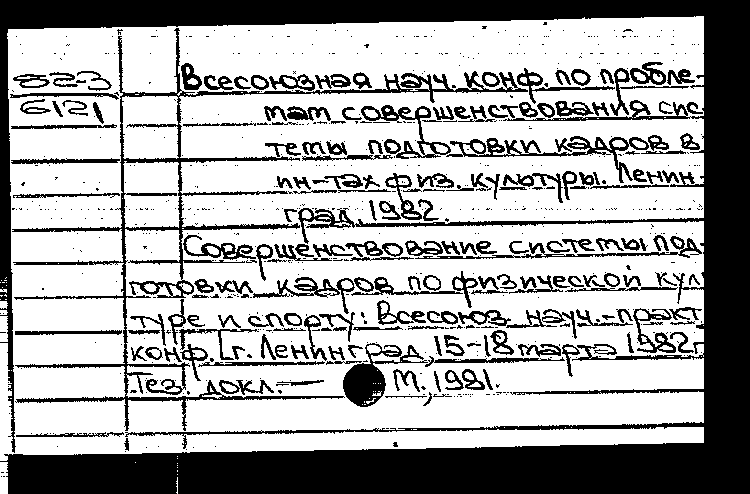 82-3
6121
Всесоюзная науч. конф. по пробле-
мам совершенствования сис
темы подготовки кадров в
ин-тах физ. культуры. Ленин-
град, 1982.
Совершенствование системы под-
готовки кадров по физической кул
туре и спорту: Всесоюз. науч.-практ
конф. [г. Ленинград, 15-18 марта 1982г
Тез. докл. — М., 1981.